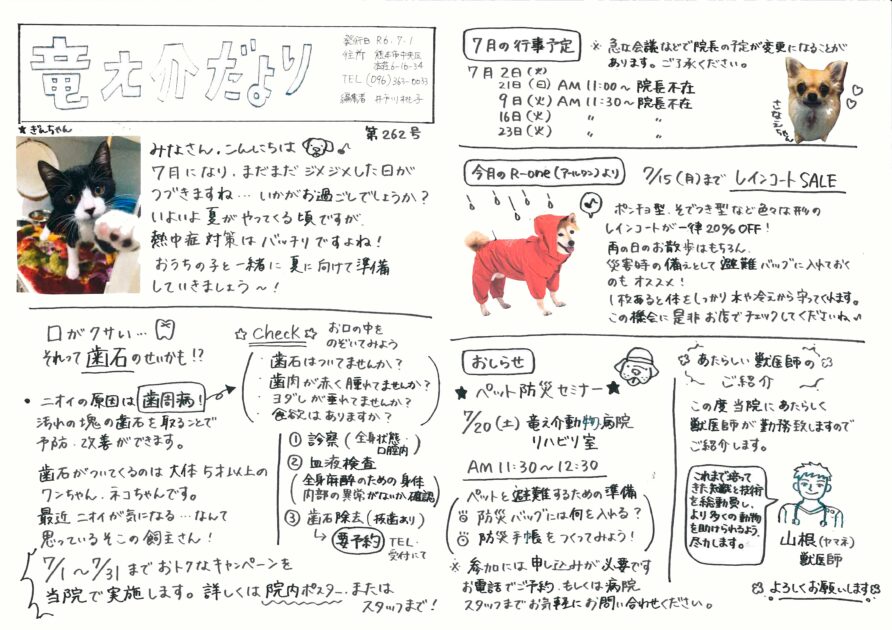 竜之介だより
発行日 R6.7.1
住所 熊本市中央区
本荘6-16-34
TEL (096)363-0033
編集者
第262号
★ぎんちゃん
みなさん、こんにちは
7月になり、まだまだジメジメした日が
つづきますね…いかがお過ごしでしょうか?
いよいよ夏がやってくる頃ですが、
熱中症対策はバッチリですよね!
おうちの子と一緒に夏に向けて準備
していきましょう〜!
口がクサい…
それって歯石のせいかも!?
・ニオイの原因は歯周病!
汚れの塊の歯石を取ることで
予防・改善ができます。
歯石がついてくるのは大体5才以上の
ワンちゃん、ネコちゃんです。
最近ニオイが気になる…なんて
思っているそこの飼主さん!
☆Check☆ お口の中を
のぞいてみよう
・歯石はついてませんか?
・歯肉が赤く腫れてませんか?
・ヨダレが垂れてませんか?
・食欲はありますか?
① 診察(全身状態・口腔内)
② 血液検査
(全身麻酔のための身体
内部の異常がないか確認)
③ 歯石除去(抜歯あり)
↳ 要予約 TEL・
受付にて
7/1〜7/31までおトクなキャンペーンを
当院で実施します。詳しくは院内ポスター、または
スタッフまで!
7月の行事予定
※急な会議などで院長の予定が変更になることが
あります。ご了承ください。
7月2日(火)
21日(日) AM 11:00〜 院長不在
9日(火) AM 11:30〜 院長不在
16日(火) 〃 〃
23日(火) 〃 〃
さなえちゃん
今月のR-one(アールワン)より
7/15(月)まで レインコートSALE
ポンチョ型、そでつき型など色々な形の
レインコートが一律20%OFF!
雨の日のお散歩はもちろん、
災害時の備えとして避難バッグに入れておく
のもオススメ!
1枚あると体をしっかり水や冷えから守ってくれます。
この機会に是非お店でチェックしてくださいね♪
おしらせ
★ペット防災セミナー★
7/20(土) 竜之介動物病院
リハビリ室
AM 11:30〜12:30
ペットと避難するための準備
防災バッグには何を入れる?
防災手帳をつくってみよう!
※参加には申し込みが必要です
お電話でご予約、もしくは病院
スタッフまでお気軽にお問い合わせください。
あたらしい獣医師の
ご紹介
この度当院にあたらしく
獣医師が勤務致しますので
ご紹介します。
これまで培って
きた知識と技術
を総動員し、
より多くの動物
を助けられるよう、
尽力します。
山根(ヤマネ)
獣医師
よろしくお願いします